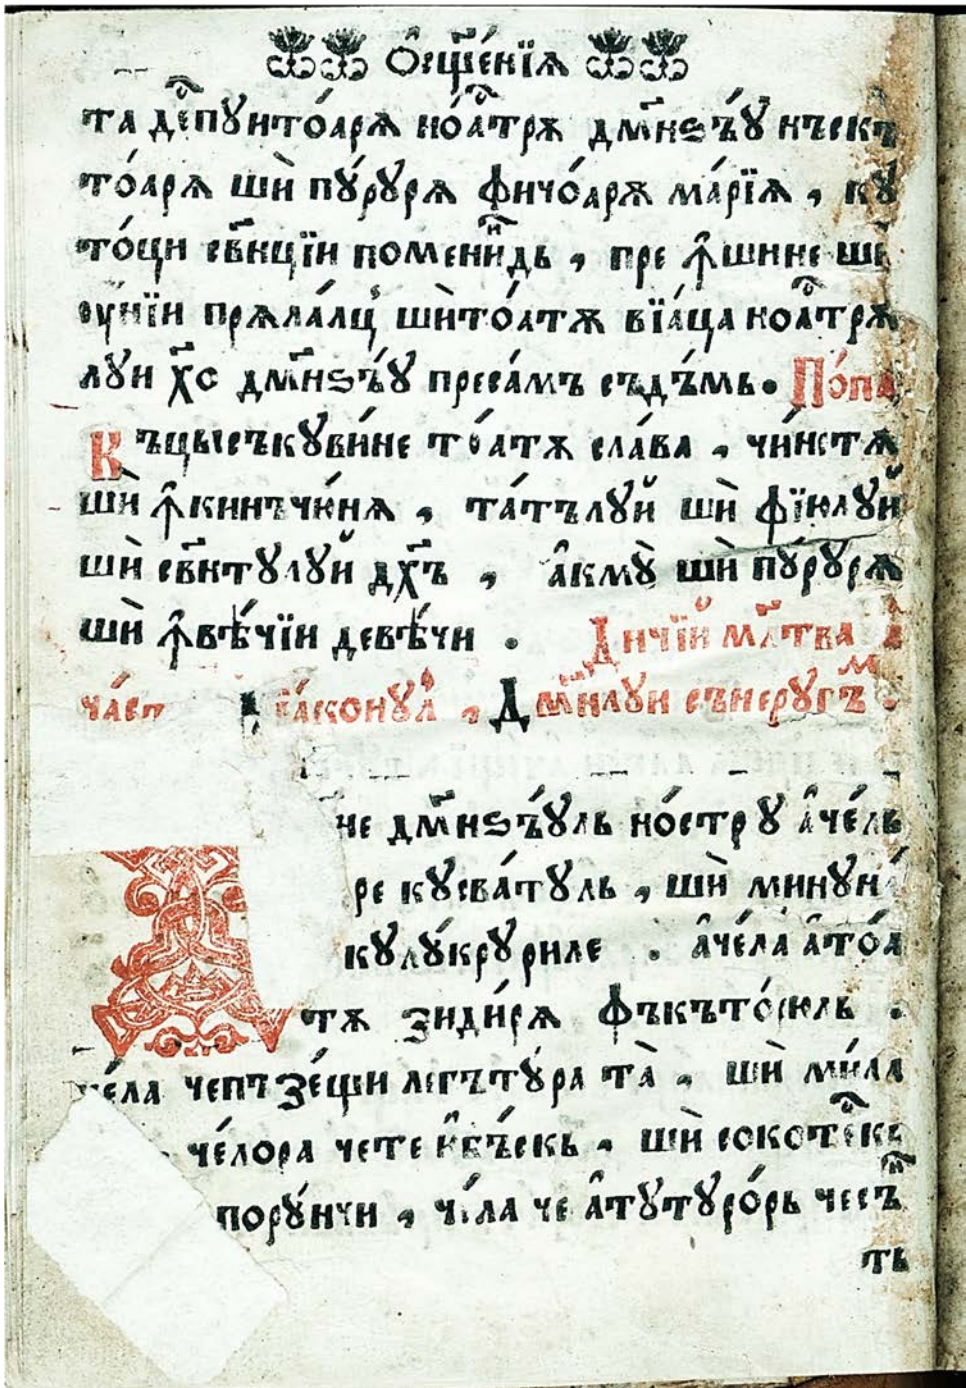 Ѻсщ҃е́нїѧ
та де́пꙋнто́арѫ но́атрѫ дм҃нѕъ́ꙋ нъскъ
то́арѫ шѝ пꙋ́рꙋрѫ фичо́арѫ ма́рїѫ , кꙋ
то́ци св҃нцїи поменинд̾ь , пре ꙟ҆шине ши
оу҆нїи прѫла́лцꙋ̀ шѝто́атѫ вїа́ца ноатрѫ
лꙋи х҃с дм҃нѕъ́ꙋ пресамъ съдъ́мь. По́па,
Къцысъкꙋви́не то́атѫ сла́ва , чи́нстѫ
шѝ ꙟ҆кинъчю́нѧ , та́тълꙋй шѝ фїюлꙋй
шѝ св҃нтꙋлꙋй дх҃ъ , а҆кмꙋ̀ шѝ пꙋ́рꙋрѫ
шѝ ꙟ҆вѣ́чїи девѣ́чи . Ди́чїй мл҃тва а
ча́еп дїа́конꙋл , Дм҃нлꙋи сънеругъм .
не дм҃нѕъ́ꙋль но́стрꙋ а҆че́ль
ре кꙋсва́тꙋль , шѝ минꙋн
кꙋлꙋ́крꙋриле . а҆че́ла а҆то́а
тѫ зиди́рѫ фъкъто́рюль .
че́ла чепъзе́щи легътꙋ́ра та̀ , шѝ ми́ла
че́лора чете и҆бъ́скь , шѝ сокотескь
порꙋ́нчи , че́ла че а҆тꙋтꙋро́рь чесъ
ть